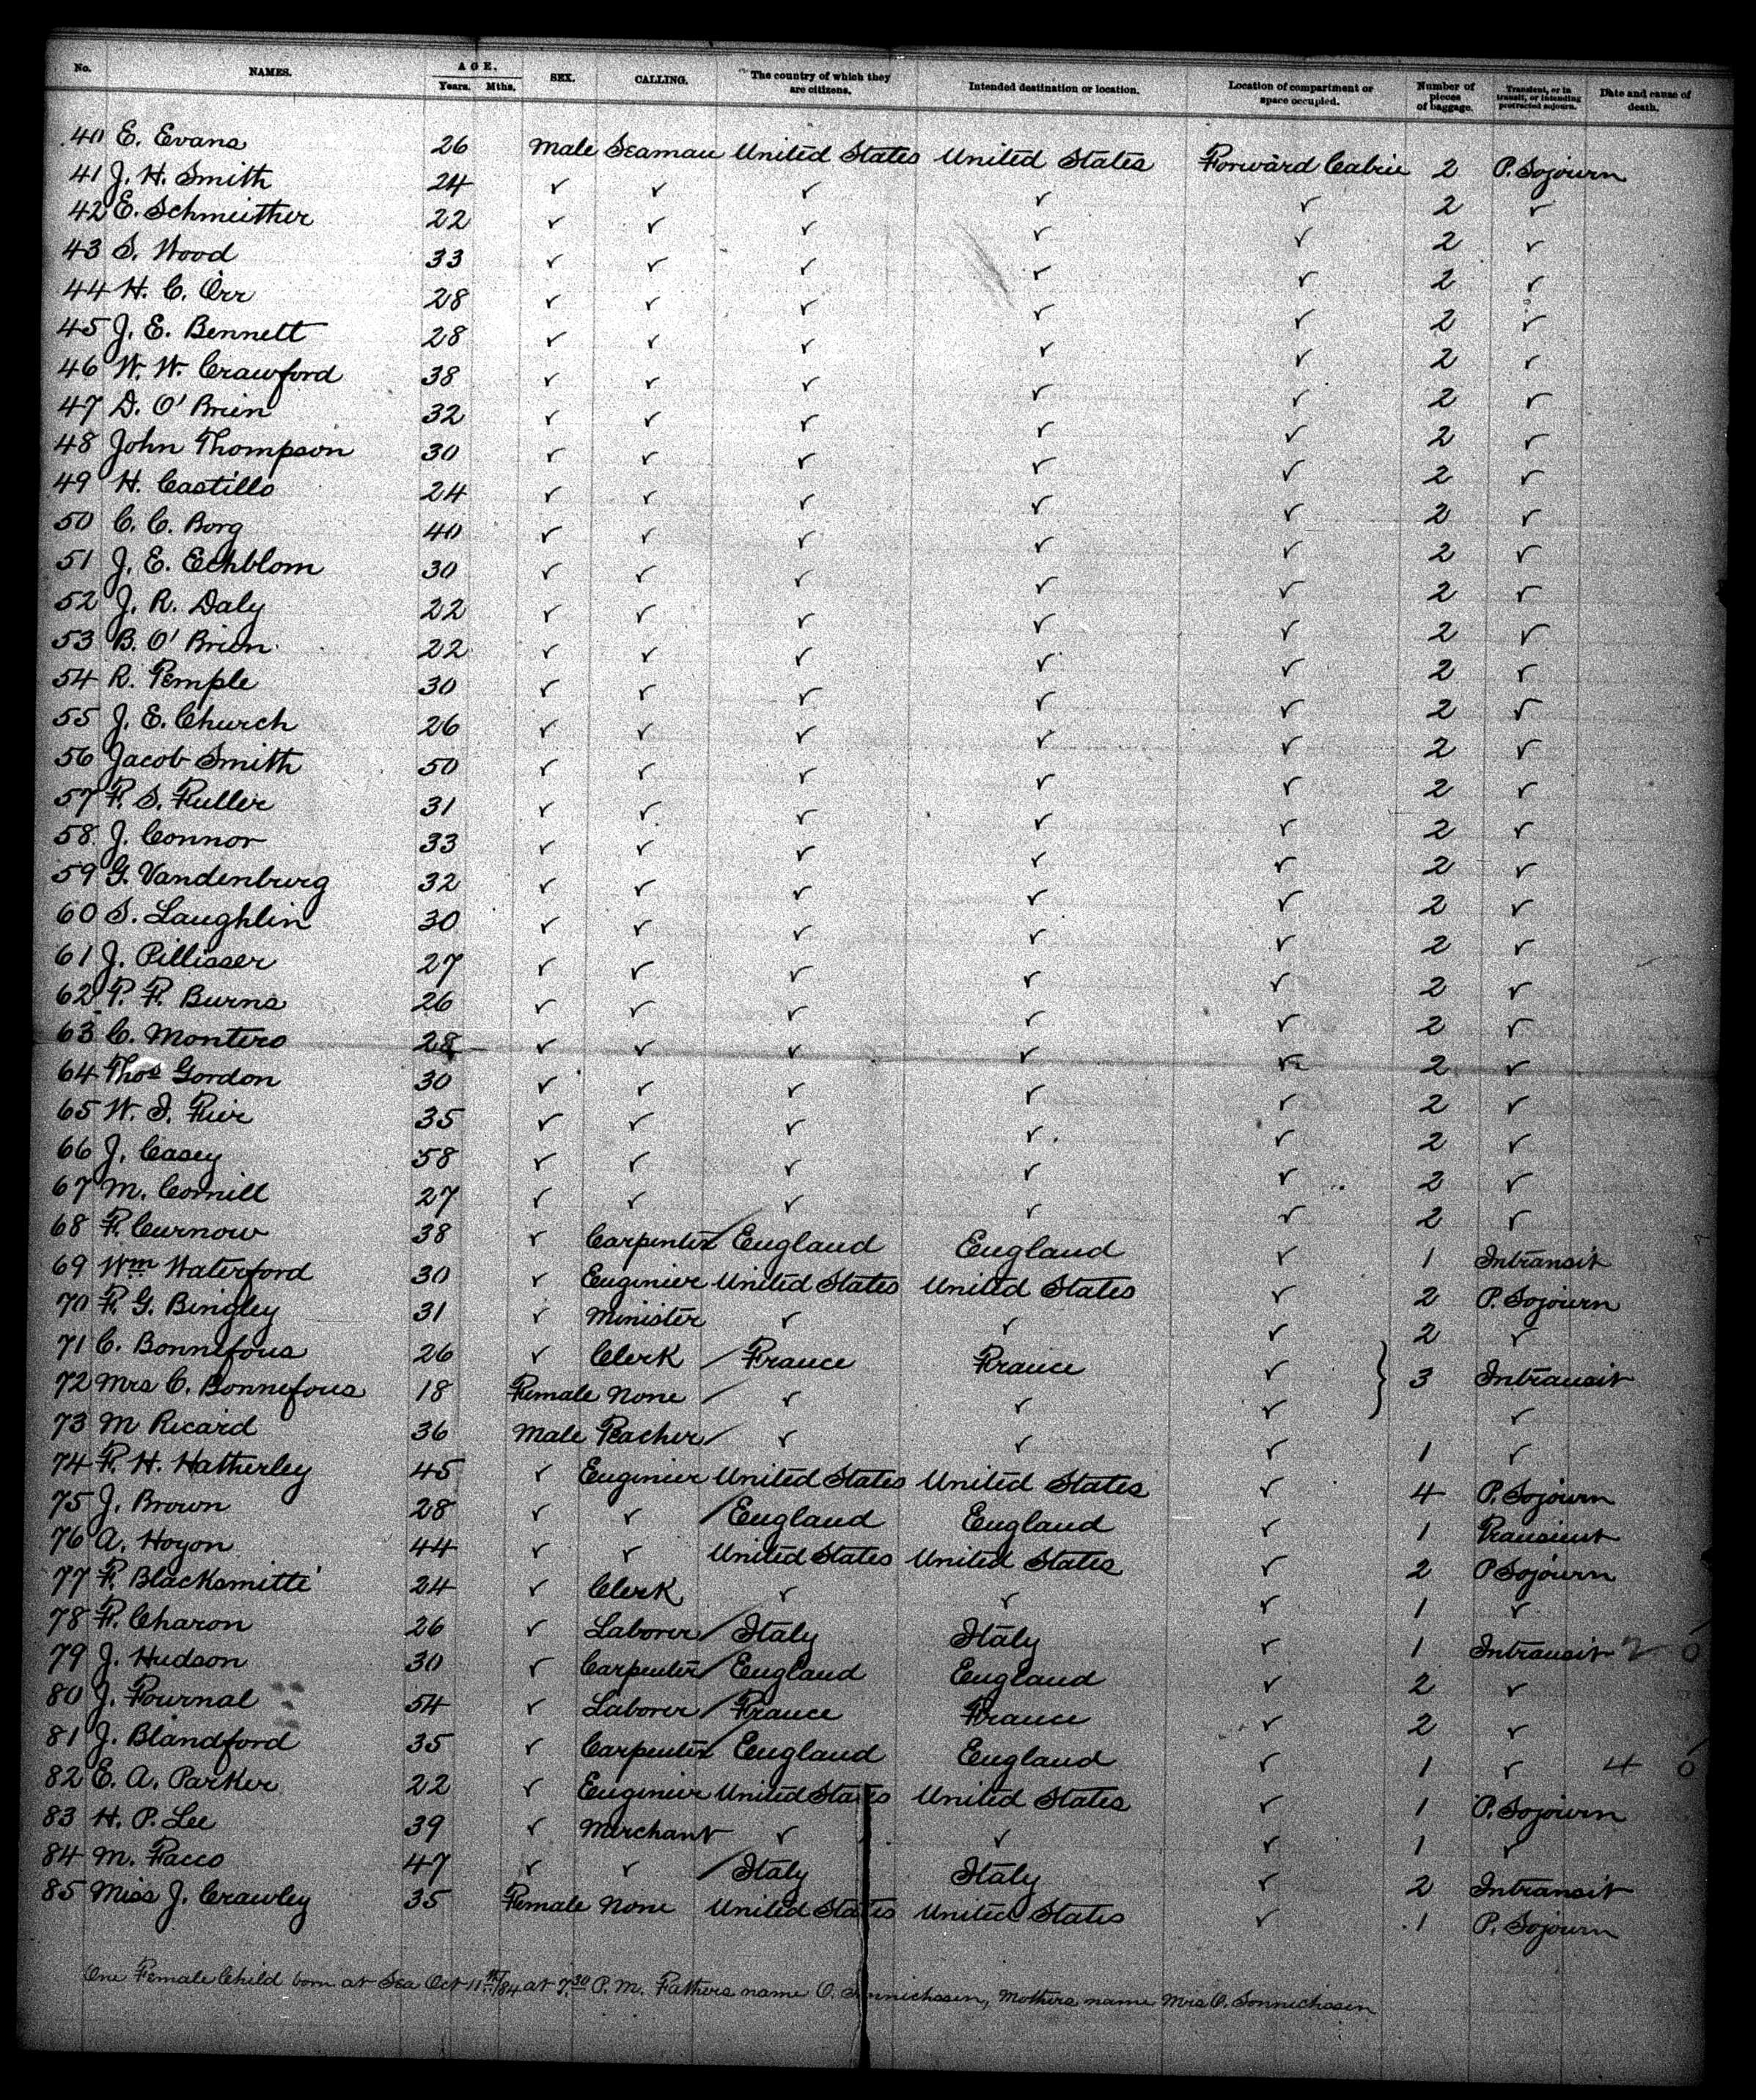 No. NAMES. AGE. Years. Mths. SEX. CALLING. The country of which they are citizens. Intended destination or location. Location of compartment or space occupied. Number of pieces of baggage. Transient, or in transit, or intending protracted sojourn. Date and cause of death.
40 E. Evans 26 Male Seaman United States United States Forward Cabin 2 P. Sojourn
41 J. H. Smith 24 ✓ ✓ ✓ ✓ ✓ 2 ✓
42 E. Schmeither 22 ✓ ✓ ✓ ✓ ✓ 2 ✓
43 S. Wood 33 ✓ ✓ ✓ ✓ ✓ 2 ✓
44 H. C. Orr 28 ✓ ✓ ✓ ✓ ✓ 2 ✓
45 J. E. Bennett 28 ✓ ✓ ✓ ✓ ✓ 2 ✓
46 W. W. Crawford 38 ✓ ✓ ✓ ✓ ✓ 2 ✓
47 D. O'Brien 32 ✓ ✓ ✓ ✓ ✓ 2 ✓
48 John Thompson 30 ✓ ✓ ✓ ✓ ✓ 2 ✓
49 H. Castillo 24 ✓ ✓ ✓ ✓ ✓ 2 ✓
50 C. C. Borg 40 ✓ ✓ ✓ ✓ ✓ 2 ✓
51 J. E. Echblom 30 ✓ ✓ ✓ ✓ ✓ 2 ✓
52 J. R. Daly 22 ✓ ✓ ✓ ✓ ✓ 2 ✓
53 B. O'Brien 22 ✓ ✓ ✓ ✓ ✓ 2 ✓
54 R. Temple 30 ✓ ✓ ✓ ✓ ✓ 2 ✓
55 J. E. Church 26 ✓ ✓ ✓ ✓ ✓ 2 ✓
56 Jacob Smith 50 ✓ ✓ ✓ ✓ ✓ 2 ✓
57 F. S. Fuller 31 ✓ ✓ ✓ ✓ ✓ 2 ✓
58 J. Connor 33 ✓ ✓ ✓ ✓ ✓ 2 ✓
59 G. Vandenburg 32 ✓ ✓ ✓ ✓ ✓ 2 ✓
60 S. Laughlin 30 ✓ ✓ ✓ ✓ ✓ 2 ✓
61 J. Pillisser 27 ✓ ✓ ✓ ✓ ✓ 2 ✓
62 T. F. Burns 26 ✓ ✓ ✓ ✓ ✓ 2 ✓
63 C. Montero 28 ✓ ✓ ✓ ✓ ✓ 2 ✓
64 Thos Gordon 30 ✓ ✓ ✓ ✓ ✓ 2 ✓
65 W. I. Fier 35 ✓ ✓ ✓ ✓ ✓ 2 ✓
66 J. Casey 58 ✓ ✓ ✓ ✓ ✓ 2 ✓
67 M. Cornill 27 ✓ ✓ ✓ ✓ ✓ 2 ✓
68 F. Curnow 38 ✓ Carpenter England England ✓ 1 Intransit
69 Wm Waterford 30 ✓ Engineer United States United States ✓ 2 P. Sojourn
70 F. G. Bingley 31 ✓ Minister ✓ ✓ ✓ 2 ✓
71 C. Bonnefous 26 ✓ Clerk France France ✓ } 3 Intransit
72 Mrs C. Bonnefous 18 Female None ✓ ✓ ✓ ✓
73 M Ricard 36 Male Teacher ✓ ✓ ✓ 1 ✓
74 F. H. Hatherley 45 ✓ Engineer United States United States ✓ 4 P. Sojourn
75 J. Brown 28 ✓ ✓ England England ✓ 1 Transient
76 A. Hogon 44 ✓ ✓ United States United States ✓ 2 P Sojourn
77 F. Blacksmitte 24 ✓ Clerk ✓ ✓ ✓ 1 ✓
78 F. Charon 26 ✓ Laborer Italy Italy ✓ 1 Intransit 2 0
79 J. Hudson 30 ✓ Carpenter England England ✓ 2 ✓
80 J. Fournal 54 ✓ Laborer France France ✓ 2 ✓
81 J. Blandford 35 ✓ Carpenter England England ✓ 1 ✓ 4 0
82 E. A. Parker 22 ✓ Engineer United States United States ✓ 1 P. Sojourn
83 H. P. Lee 39 ✓ Merchant ✓ ✓ ✓ 1 ✓
84 M. Facco 47 ✓ ✓ Italy Italy ✓ 2 Intransit
85 Miss J. Crawley 35 Female None United States United States ✓ 1 P. Sojourn
One Female Child born at Sea Oct 11th/84 at 7.30 P.M. Fathers name O. Sonnichsen, Mothers name Mrs O. Sonnichsen